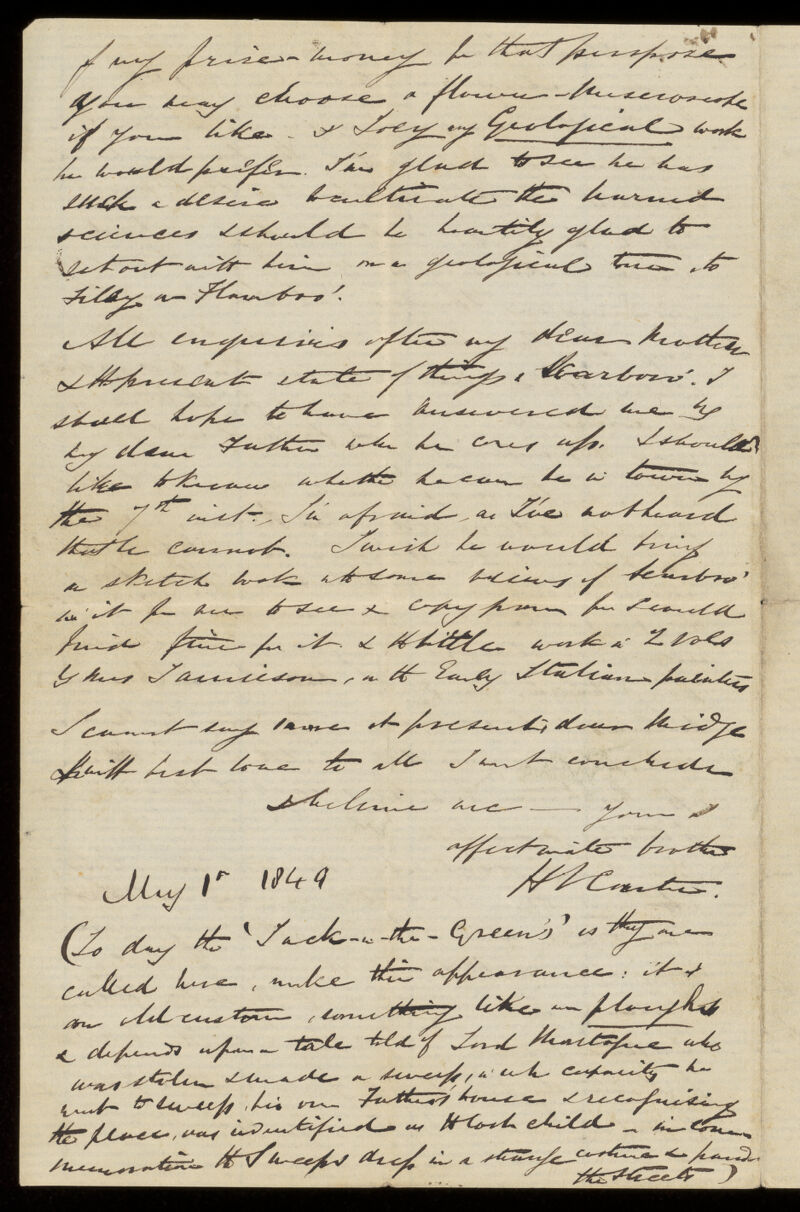 of my prize-money for that purpose
you may choose a flower-Microscope
if you like - & Joey my Geological work
he would prefer. I'm glad to see he has
such a desire to cultivate the learned
sciences & should be heartily glad to
set out with him on a geological tour to
Filey or Flambro'.
All enquiries after my dear Mother
& the present state of things at Scarboro'. I
shall hope to have answered me by
my dear Father when he comes up. I should
like to know whether he can be in town by
the 7th inst. I'm afraid, as I've not heard
that he cannot. I wish he would bring
a sketch book with some views of Scarbro'
in it for me to see & copy from for I could
find time for it. & the little work in 2 vols
by Mrs Jamieson, on the Early Italian painters
I cannot say more at present, dear Midge
& with best love to all I must conclude
& believe me — your
affectionate brother
HVCarter.
May 1st 1849
(To day the 'Jack-in-the-Green's' as they are
called here, make their appearance: it is
an old custom, something like our plough
& depends upon a tale told of Lord Montague who
was stolen & made a sweep, in wh capacity he
went to sweep his own Father's house & recognising
the place, was indentified as the lost child - in com-
memoration the Sweeps dress in a strange costume & parade
the streets)